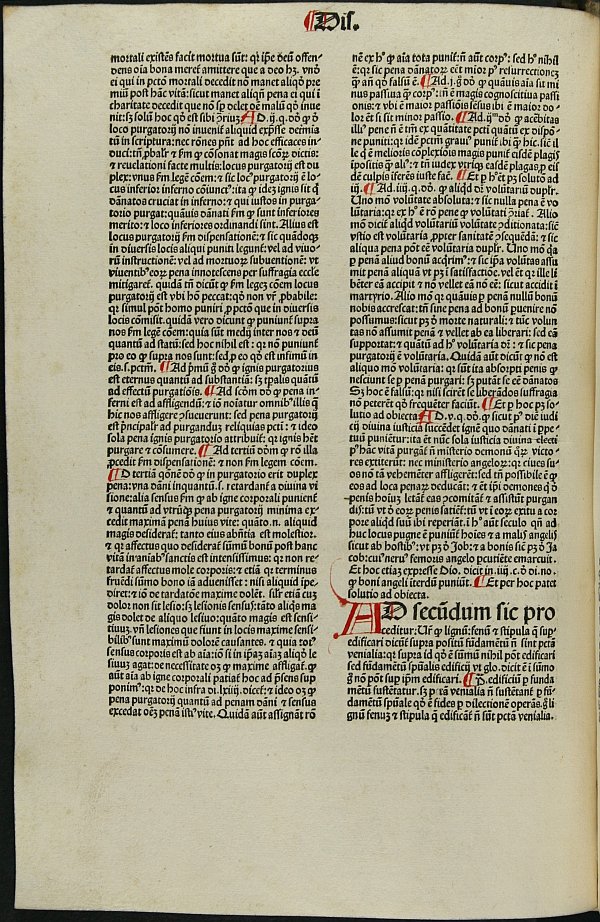 ¶Dis.
mortali existẽs facit mortua sũt: qꝛ ip̃e deũ offen⸗
dens oĩa bona meret̃ amittere que a deo hꝫ. vnõ
ei qui in pctõ mortali decedit nõ manet aliqđ pre
miũ post hãc vitã: sicut manet aliqñ pena ei qui ĩ
charitate decedit que nõ sꝑ delet õe malũ qđ inue
nit: sꝫ solũ hoc qđ est sibi ꝯ̃riuꝫ ¶Ad .ij. qđ õ ꝙ đ
loco purgatorij nõ inuenit̃ aliquid exp̃sse determia
tũ in scriptura: nec rões pñt ad hoc efficaces in⸗
duci: tñ ꝓbalr̃ & ẜm ꝙ cõsonat magis scõꝝ dictis:
& reuelatioĩ facte multis: locus purgatorij est du
plex: vnus ẜm legẽ cõem: & sic loc⁹ purgatorij ẽ lo⸗
cus inferior inferno cõiunct⁹: ita ꝙ idẽ ignis sit ꝗ̃
dãnatos cruciat in inferno: & qui iustos in purga⸗
torio purgat: quãuis dãnati ẜm ꝙ sunt inferiores
merito: & loco inferiores ordinandi sint. Alius est
locus purgatorij ẜm dispensationẽ: & sic quãdoqꝫ
in diuersis locis aliqui puniti legunt̃: vel ad viuo⸗
rũ instructionẽ: vel ad mortuoꝝ subuentionẽ: vt
viuentib⁹ eoꝝ pena innotescens per suffragia ecclie
mitigaret̃. quidã tñ dicũt ꝙ ẜm legẽ cõem locus
purgatorij est vbi hõ peccat: qđ non vr̃ ꝓbabile:
qꝛ simul põt homo puniri ꝓ pctõ que in diuersis
locis cõmisit. quidã vero dicunt ꝙ puniunt̃ supra
nos ẜm legẽ cõem: quia sũt medij inter nos & deũ
quantũ ad statũ: sed hoc nihil est: qꝛ nõ puniunt̃
pro eo ꝙ supra nos sunt: sed ꝓ eo qđ est infimũ in
eis. s. pctm̃. ¶Ad p̃mũ g̃ õđ ꝙ ignis purgatorius
est eternus quantũ ad substantiã: sꝫ tp̃alis quãtũ
ad effectũ purgatiõis. ¶Ad scđm đõ ꝙ pena in⸗
ferni est ad affligendũ: & iõ noĩatur omnib⁹ illis ꝗ̃
hic nos affligere ꝯsueuerunt: sed pena purgatorij
est p̃ncipalr̃ ad purgandũ reliquias pctĩ: & ideo
sola pena ignis purgatorio attribuit̃: qꝛ ignis hꝫ
purgare & cõsumere. ¶Ad tertiũ đõm ꝙ rõ illa
ꝓcedit ẜm dispensationẽ: & non ẜm legem cõem.
¶Ad tertiã qõnẽ đõ ꝙ in purgatorio erit duplex
pena: vna dãni inquantũ. s. retardant̃ a diuina vi
sione: alia sensus ẜm ꝙ ab igne corporali punient̃
& quantũ ad vtrũqꝫ pena purgatorij minima ex⸗
cedit maximã penã huius vite: quãto. n. aliquid
magis desiderat̃: tanto eius abñtia est molestior.
& qꝛ affectus quo desiderat̃ sũmũ bonũ post hanc
vitã in aĩab⁹ sanctis est intensissimus: qꝛ non re⸗
tardat̃ affectus mole corporis: & etiã qꝛ terminus
fruẽdi sũmo bono iã aduenisset: nisi aliquid ipe⸗
diret: & iõ de tardatõe maxime dolẽt. Silr̃ etiã cuꝫ
dolor non sit lesio: sꝫ lesionis sensus: tãto aliqs ma
gis dolet de aliquo lesiuo: quãto magis est sensi⸗
tiuuꝫ. vñ lesiones que fiunt in locis maxime sensi⸗
bilib⁹ sunt maximũ dolorẽ causantes. & quia tot⁹
sensus corporis est ab aĩa: iõ si in ip̃aꝫ aĩaꝫ aliqđ le
siuuꝫ agat: de necessitate oꝫ ꝙ maxime affligat̃. ꝙ
aũt aĩa ab igne corporali patiat̃ hoc ad p̃sens sup
ponim⁹: qꝛ de hoc infra di. lxiiij. dicet̃: & ideo oꝫ ꝙ
pena purgatorij quantũ ad penam dãni & sensus
excedat oẽꝫ penã isti⁹ vite. Quidã aũt assignãt rõ
nẽ ex h⁹ ꝙ aĩa tota punit̃: ñ aũt corp⁹: sed h⁹ nihil
ẽ: qꝛ sic pena dãnatoꝝ eẽt mior p⁹ resurrectionẽꝫ
ꝙ̃ añ qđ falsũ ẽ. ¶Ad .j. g̃ đõ ꝙ quãuis aĩa sit mi
nus passiua ꝙ̃ corp⁹: tñ ẽ magis cognoscitiua passi
onis: & vbi ẽ maior passiõis sensus ibi ẽ maior do⸗
lor & si sit minor passio. ¶Ad .ij^m đõ. ꝙ acerbitas
illi⁹ pene ñ ẽ tm̃ ex quantitate pctĩ quãtũ ex dispõ⸗
ne puniti: qꝛ idẽ pctm̃ graui⁹ punit̃ ibi ꝙ̃ hic. sic il
le ꝗ ẽ melioris cõplexiõis magis punit̃ eisdẽ plagis
ip̃ositis ꝙ̃ ali⁹: & tñ iudex vtriqꝫ easdẽ plagas ꝓ eisđ
đ culpis iferẽs iuste fac̃. ¶Et ꝑ hꝫ pꝫ soluto ad
.iij. ¶Ad .iiij. qđ. đõ. ꝙ aliqđ dr̃ voluntariũ duplr̃.
Uno mõ volũtate absoluta: & sic nulla pena ẽ vo
lũtaria: qꝛ ex h⁹ ẽ rõ pene ꝙ volũtati ꝯ̃riat̃. Alio
mõ dicit̃ aliqđ voluntariũ volũtate ꝯditionata: sic
vstio est volũtaria ꝓpter sanitatẽ ꝯsequẽdã: & sic
aliqua pena põt eẽ volũtaria duplr̃. Uno mõ qꝛ
ꝑ penã aliud bonũ acqrim⁹: & sic ip̃a volũtas assu
mit penã aliquã vt pꝫ ĩ satisfactiõe. vel & qꝛ ille li
bẽter eã accipit & nõ vellet eã nõ eẽ: sicut accidit ĩ
martyrio. Alio mõ qꝛ quãuis ꝑ penã nullũ bonũ
nobis accrescat: tñ sine pena ad bonũ ꝑuenire nõ
possumus: sicut pꝫ đ morte naturali: & tũc volun
tas nõ assumit penã & vellet ab ea liberari: sed eã
supportat: & quãtũ ad h⁹ volũtaria dr̃: & sic pena
purgatorij ẽ volũtaria. Quidã aũt dicũt ꝙ nõ est
aliquo mõ volũtaria: qꝛ sũt ita absorpti penis ꝙ
nesciunt se ꝑ penã purgari: sꝫ putãt se eẽ dãnatos
Sꝫ hoc ẽ falsũ: qꝛ nisi scirẽt se liberãdos suffragia
nõ peterẽt qđ freq̃uẽter faciũt. ¶Et ꝑ hoc pꝫ so⸗
lutio ad obiecta. ¶Ad .v. q. đõ. ꝙ sicut p⁹ diẽ iudi
cij diuina iusticia succẽdet ignẽ quo dãnati ĩ ppe⸗
tuũ puniẽtur: ita & nũc sola iusticia diuina electi
p⁹ hãc vitã purgãt̃ ñ misterio demonũ qꝝ victo⸗
res extiterũt: nec ministerio angeloꝝ: qꝛ ciues su⸗
os nõ tã vehemẽter affligerẽt: sed tñ possibile ẽ ꝙ
eos ad loca penaꝝ deducãt: & ẽt ip̃i demones ꝗ đ
penis hoĩuꝫ letãt̃ eas ꝯcomitãt̃ & assistũt purgan
dis: tũ vt đ eoꝝ penis satiẽt̃: tũ vt ĩ eoꝝ exitu a cor
pore aliqđ suũ ibi reperiãt. ĩ h⁹ aũt seculo qñ ad
huc locus pugne ẽ puniunt̃ hoĩes & a malis angelis
sicut ab hostib⁹: vt pꝫ đ Job: & a bonis sic pꝫ đ Ja
cob: cui⁹ neru⁹ femoris angelo pcutiẽte emarcuit.
Et hoc etiaꝫ expresse Dio. dicit in .iiij. c. đ di. no.
ꝙ boni angeli iterdũ puniũt. ¶Et per hoc patet
solutio ad obiecta.
AD secũdum sic pro
ceditur: Ur̃ ꝙ lignũ: fenũ & stipula ꝗ̃ sup⸗
edificari dicũt̃ supra positũ fũdamẽtũ ñ sint pctã
venialia: qꝛ supra id qđ ẽ sũmũ nihil põt edificari
sed fũdamẽtũ spũalis edificij vt glo. dicit ẽ ĩ sũmo
g̃ nõ põt sup ip̃m edificari. ¶P̃. edificiũ ꝑ funda
mẽtũ sustẽtatur. sꝫ ꝑctã venialia ñ sustẽtant̃ ꝑ fũ⸗
damẽtũ spũale qđ ẽ fides ꝑ dilectionẽ operãs. g̃ li
gnũ fenuꝫ & stipula ꝗ̃ edificãt̃ ñ sũt pctã venialia.